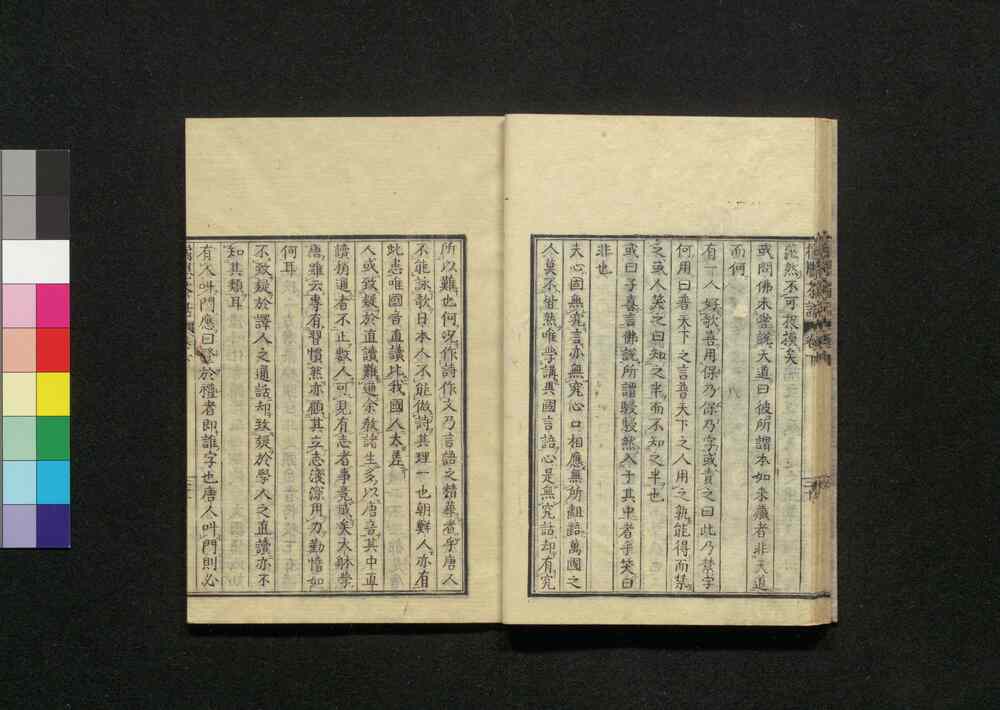 茫然不可捉摸矣
或問佛未嘗說天道曰彼所謂本如來藏者非天道
而何
有一人好歌喜用保乃保乃字或責之曰此乃禁字
何用曰普天下之言普天下之人用之孰能得而禁
之或人笑之曰知之半而不知之半也
或曰子喜言佛說所謂駸駸然入于其中者乎笑曰
非也
夫心固無窮言亦無究心口相應無所齟齬萬國之
人莫不皆然唯學講異國言語心是無究話却有究
所以難也何呀作詩作文乃言語之精華者乎唐人
不能詠歌日本人不能做詩其理一也朝鮮人亦有
此患唯國音直讀比我國人太差
人或致疑於直讀難通余教諸生多以唐音其中直
讀稍通者不止數人可見有志者事竟成矣大躰學
唐雖云專有習慣然亦顧其立志淺深用力勤惰如
何耳
不致疑於譯人之通話却致疑於學人之直讀亦不
知其類耳
有人叫門應曰 於禮者即誰字也唐人叫門則必